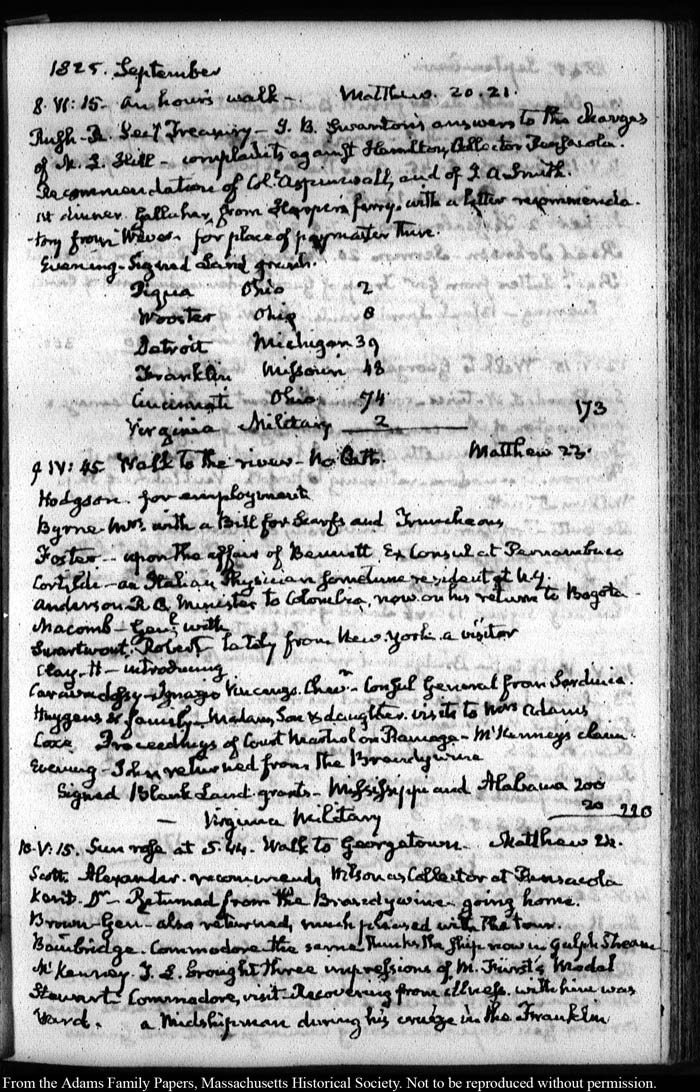 1825. September
8. VI: 15. an hour's walk. Matthew. 20. 21.
Rush. R. Secy Treasury — T. B. Swanton's answers to the charges
of M. L. Hill — complaints against Hamilton, Collector Pensacola.
Recommendation of Col. Aspinwall, and of J. A. Smith.
at dinner. Gallaher, from Harpers ferry. with a letter recommenda-
-tory from for place of paymaster there.
Evening. Signed Land grants.
Piqua Ohio 2
Wooster Ohio 8
Detroit Michigan 39
Franklin Missouri 48
Cincinnati Ohio 74
Virginia Military 2 173
9 IV: 45 Walk to the river. No Bath. Matthew 23.
Hodgson. for employment
Byrne Mrs. with a Bill for Scarfs and Truncheons
Foster — upon the affair of Bennett Ex Consul at Pernambuco
— an Italian Physician sometime resident at N.Y.
Anderson R. C. Minister to Colombia, now on his return to Bogota
Macomb — Genl. with
Swartwout. Robert. lately from New York. a visitor
Clay. H — introducing
Ignazio Vincenzo. Chevr. Consul General from Sardinia.
Huygens & family. Madam, Son & daughter. visits to Mrs Adams
Coxe Proceedings of Court Martial on Ramage — McKenney's claim.
Evening — John returned from the Brandywine
Signed Blank Land grants — Mississippi and Alabama 200
— Virginia Military 20 220
10. V: 15. Sun rose at 5. 44. Walk to Georgetown. Matthew 24.
Scott Alexander. recommends Wilson as Collector at Pensacola
Kent. Dr — Returned from the Brandywine going home.
Brown. Gen. — also returned, much pleased with the tour.
Bainbridge. Commodore the same. thinks the Ship now in Gulph Stream
McKenney. T. L. brought three impressions of M. Fürst's Medal
Stewart. Commodore, visit. Recovering from illness. with him was
Ward. a Midshipman during his cruize in the Franklin
From the Adams Family Papers, Massachusetts Historical Society. Not to be reproduced without permission.